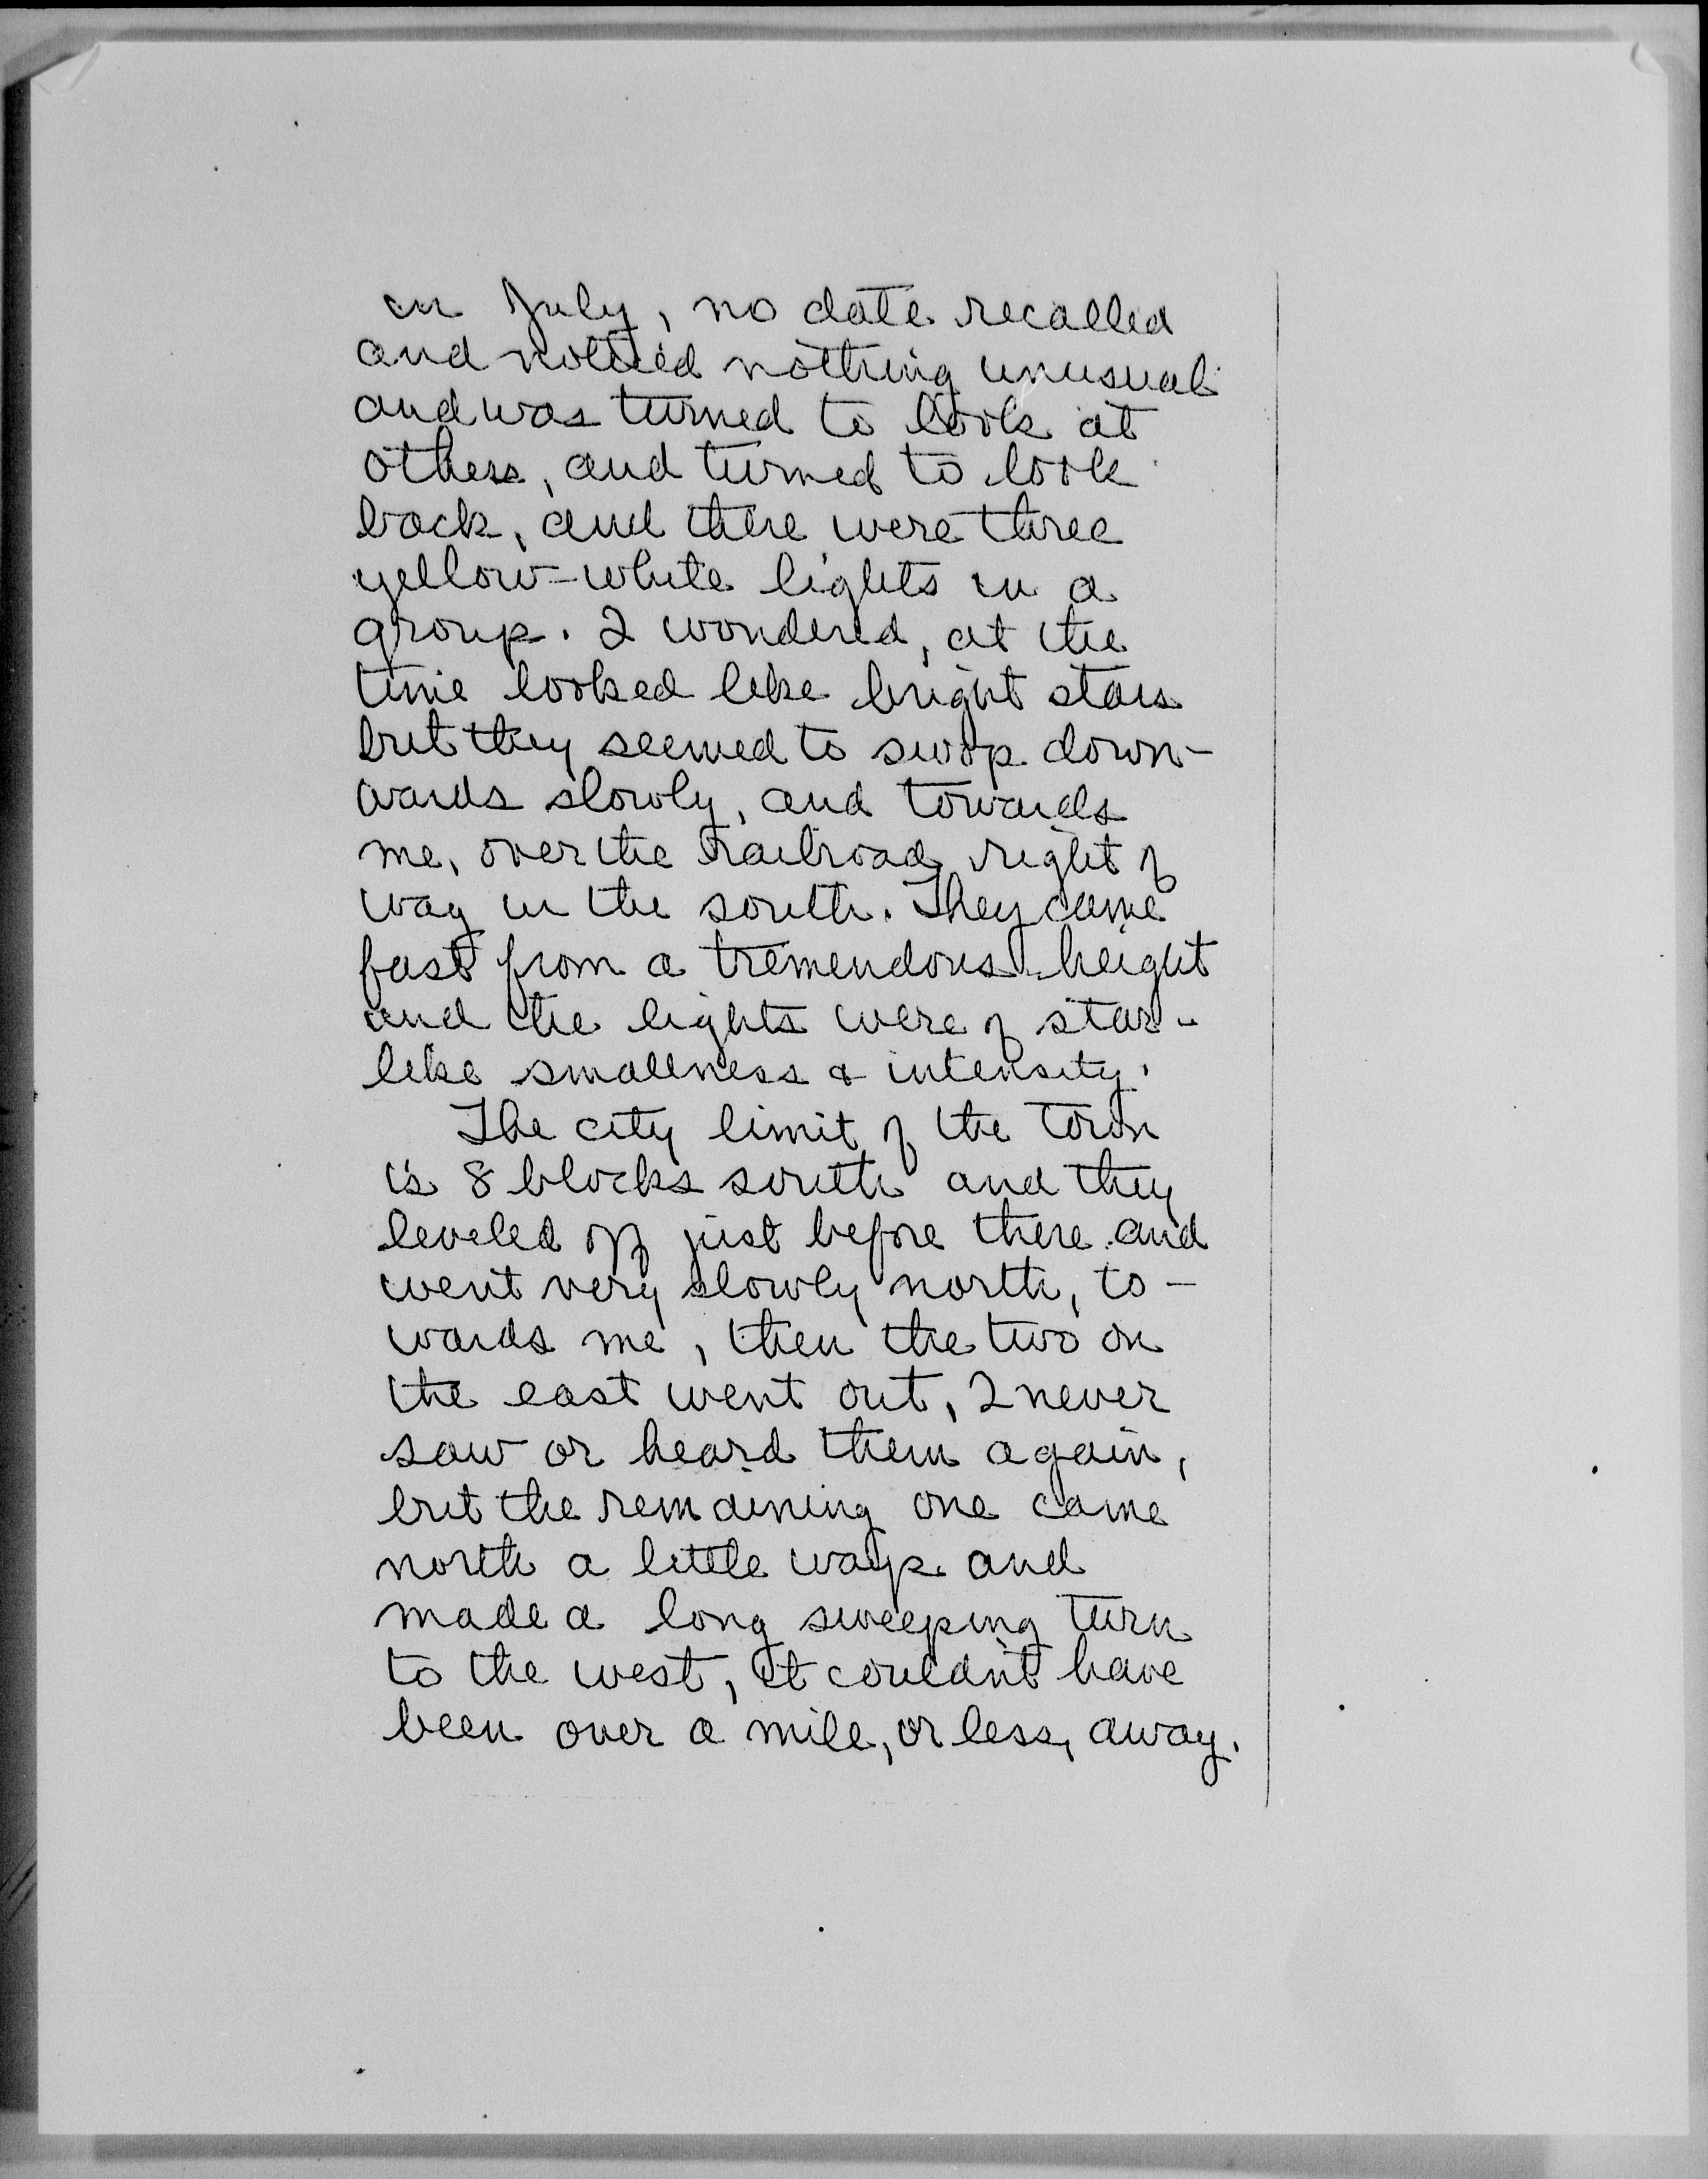 in July, no date recalled
and noticed nothing unusual
and was turned to look at
others, and turned to look
back, and there were three
yellow-white lights in a
group. I wondered, at the
time looked like bright stars
but they seemed to swop down-
wards slowly, and towards
me, over the railroad right of
way in the south. They came
fast from a tremendous height
and the lights were of star-
like smallness & intensity.
The city limit of the town
is 8 blocks south and they
leveled off just before there and
went very slowly north, to-
wards me, then the two on
the east went out, I never
saw or heard them again,
but the remaining one came
north a little ways and
made a long sweeping turn
to the west, it couldn't have
been over a mile, or less, away.